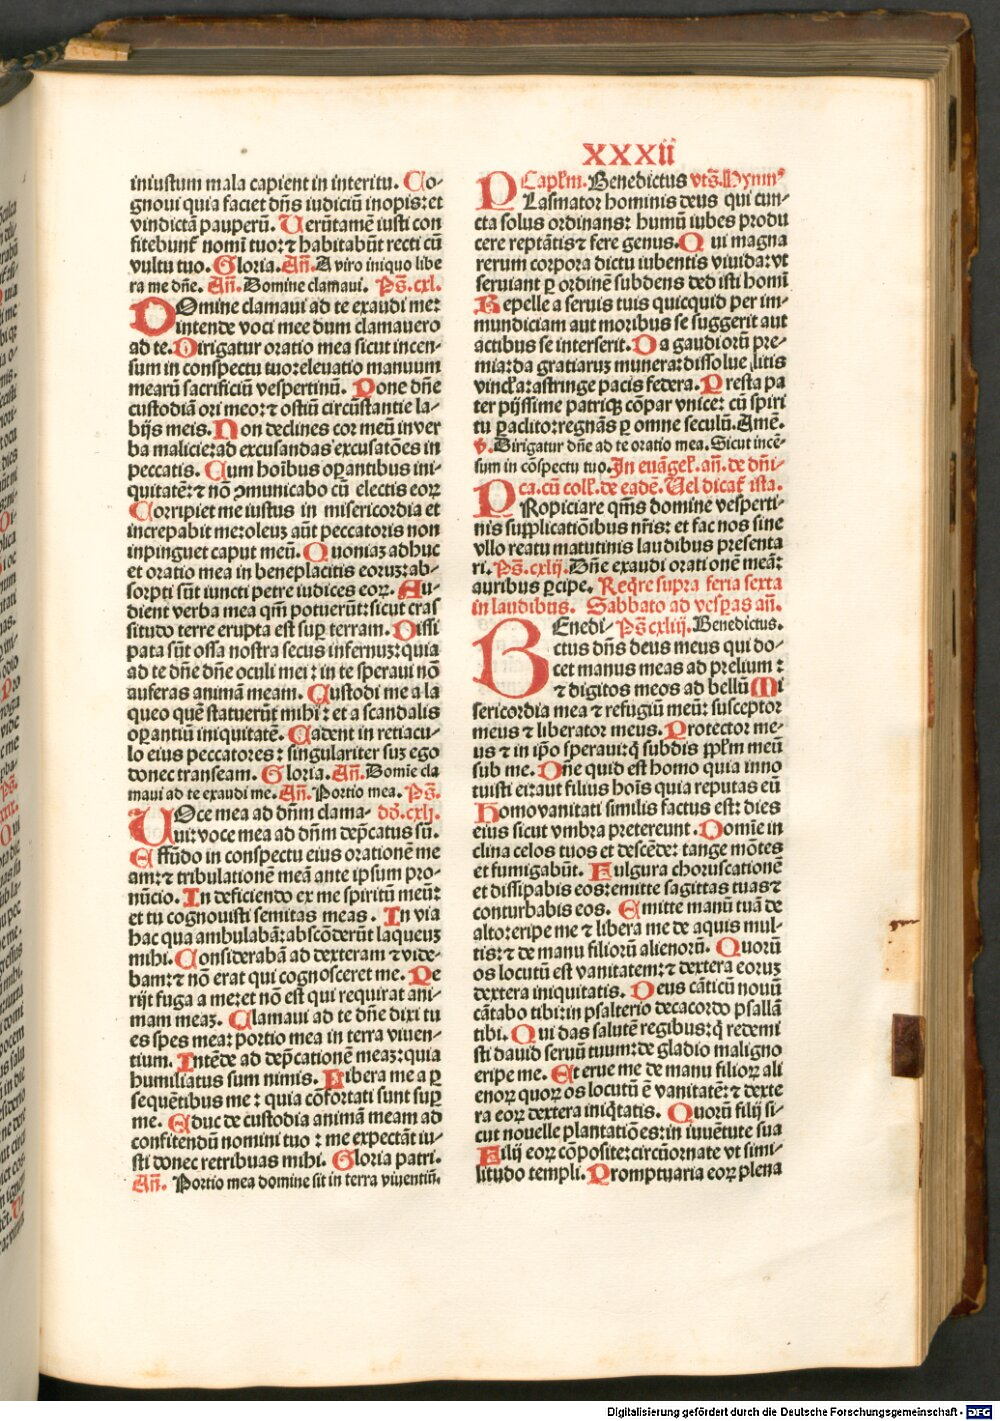 XXXII
iniustum mala capient in interitu. Co-
gnoui quia faciet dn̄s iudiciū inopis: et
vindictā pauperū. Uerūtamē iusti con
fitebunt᷑ nomī tuo: ⁊ habitabūt recti cū
vultu tuo. Gloria. Añ. A viro iniquo libe
ra me dn̄e. Añ. Domine clamaui. Ps̄. cxl.
DOmine clamaui ad te exaudi me:
intende voci mee dum clamauero
ad te. Dirigatur oratio mea sicut incen-
sum in conspectu tuo: eleuatio manuum
mearū sacrificiū vespertinū. Pone dn̄e
custodiā ori meo: ⁊ ostiū circūstantie la-
bijs meis. Non declines cor meū in ver
ba malicie: ad excusandas excusatōes in
peccatis. Cum hoībus oꝑantibus ini-
quitatē: ⁊ nō ꝯmunicabo cū electis eoꝝ
Corripiet me iustus in misericordia et
increpabit me: oleuꝫ aūt peccatoris non
inpinguet caput meū. Quoniaꝫ adhuc
et oratio mea in beneplacitis eoruꝫ: ab-
sorpti sūt iuncti petre iudices eoꝝ. Au-
dient verba mea qm̄ potuerūt: sicut cras
situdo terre erupta est suꝑ terram. Dissi
pata sūt ossa nostra secus infernuꝫ: quia
ad te dn̄e dn̄e oculi mei: in te speraui nō
auferas animā meam. Custodi me a la
queo quē statuerūt mihi: et a scandalis
oꝑantiū iniquitatē. Cadent in retiacu-
lo eius peccatores: singulariter suꝫ ego
donec transeam. Gloria. Añ. Domīe cla
maui ad te exaudi me. Añ. Portio mea. Ps̄.
UOce mea ad dn̄m clama- dō. cxlj.
ui: voce mea ad dn̄m dep̄catus sū.
Effūdo in conspectu eius orationē me
am: ⁊ tribulationē meā ante ipsum pro-
nūcio. In deficiendo ex me spiritū meū:
et tu cognouisti semitas meas. In via
hac qua ambulabā: abscōderūt laqueuꝫ
mihi. Considerabā ad dexteram ⁊ vide-
bam: ⁊ nō erat qui cognosceret me. Pe
rijt fuga a me: et nō est qui requirat ani-
mam meaꝫ. Clamaui ad te dn̄e dixi tu
es spes mea: portio mea in terra viuen-
tium. Intēde ad dep̄cationē meaꝫ: quia
humiliatus sum nimis. Libera me a ꝑ
sequētibus me: quia cōfortati sunt suꝑ
me. Educ de custodia animā meam ad
confitendū nomini tuo: me expectāt iu-
sti donec retribuas mihi. Gloria patri.
Añ. Portio mea domine sit in terra viuentiū.
Capl̄m. Benedictus vts̄. Hymnꝰ
PLasmator hominis deus qui cun-
cta solus ordinans: humū iubes produ
cere reptātis ⁊ fere genus. Qui magna
rerum corpora dictu iubentis viuida: vt
seruiant ꝑ ordinē subdens ded isti homī
Repelle a seruis tuis quicquid per im-
mundiciam aut moribus se suggerit aut
actibus se interserit. Da gaudioꝝ pre-
mia: da gratiaruꝫ munera: dissolue litis
vincla: astringe pacis federa. Presta pa
ter pijssime patriqꝫ cōpar vnice: cū spiri
tu ꝑaclito: regnās ꝑ omne seculū. Amē.
v̄. Dirigatur dn̄e ad te oratio mea. Sicut incē-
sum in cōspectu tuo. In euāgel̄. an̄. de dn̄i-
ca. cū coll̄. de eadē. Uel dicat᷑ ista.
PRopiciare qs̄ms domine vesperti-
nis supplicatiōibus nr̄is: et fac nos sine
vllo reatu matutinis laudibus presenta
ri. Ps̄. cxlij. Dn̄e exaudi orationē meā:
auribus ꝑcipe. Reqr̄e supra feria sexta
in laudibus. Sabbato ad vesꝑas an̄.
BEnedi- Ps̄ cxliij. Benedictus.
ctus dn̄s deus meus qui do-
cet manus meas ad prelium:
⁊ digitos meos ad bellū Mi
sericordia mea ⁊ refugiū meū: susceptor
meus ⁊ liberator meus. Protector me-
us ⁊ in ip̄o speraui: q̄ subdis pp̄lm meū
sub me. Dn̄e quid est homo quia inno
tuisti ei: aut filius hoīs quia reputas eū
Homo vanitati similis factus est: dies
eius sicut vmbra pretereunt. Domīe in
clina celos tuos et descēde: tange mōtes
et fumigabūt. Fulgura choruscationē
et dissipabis eos: emitte sagittas tuas ⁊
conturbabis eos. Emitte manū tuā de
alto: eripe me ⁊ libera me de aquis mul-
tis: ⁊ de manu filiorū alienorū. Quorū
os locutū est vanitatem: ⁊ dextera eoruꝫ
dextera iniquitatis. Deus cāticū nouū
cātabo tibi: in psalterio decacordo psallā
tibi. Qui das salutē regibus: q̄ redemi
sti dauid seruū tuum: de gladio maligno
eripe me. Et erue me de manu filioꝝ ali
enoꝝ quoꝝ os locutū ē vanitatē: ⁊ dexte
ra eoꝝ dextera iniq̇tatis. Quorū filij si-
cut nouelle plantatiōes: in iuuētute sua
Filij eoꝝ cōposite: circūornate vt simi-
litudo templi. Promptuaria eoꝝ plena
Digitalisierung gefördert durch die Deutsche Forschungsgemeinschaft - DFG